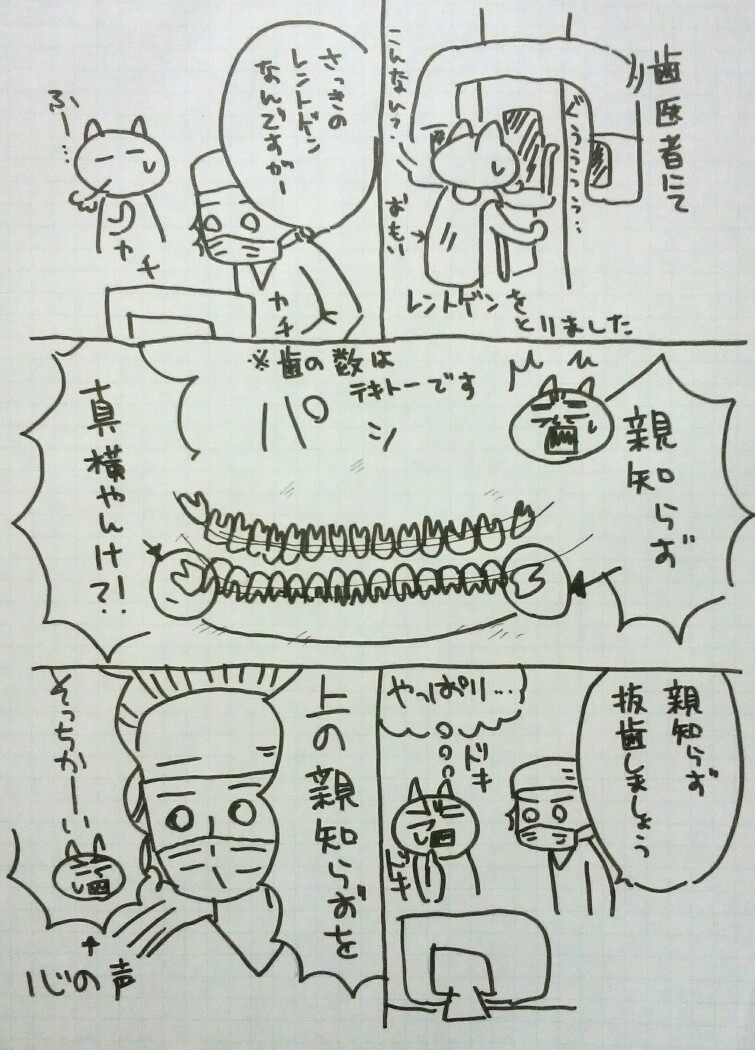 歯医者にて
ぐぅぅぅぅぅ…
こんない?
おもい
レントゲンを
とりました
さっきの
レントゲン
なんですがー
ふー…
カチ
カチ
親知らず
※歯の数は
テキトーです
パシ
真横やんけ?!
親知らず
抜歯しましょう
やっぱり…
ドキ
ドキ
上の親知らずを
そっちかーい
心の声